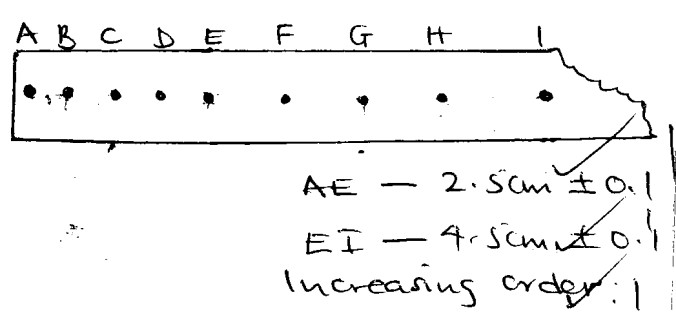 A B C D E F G H I
AE — 2.5cm ± 0.1
EI — 4.5cm ± 0.1
Increasing order : 1